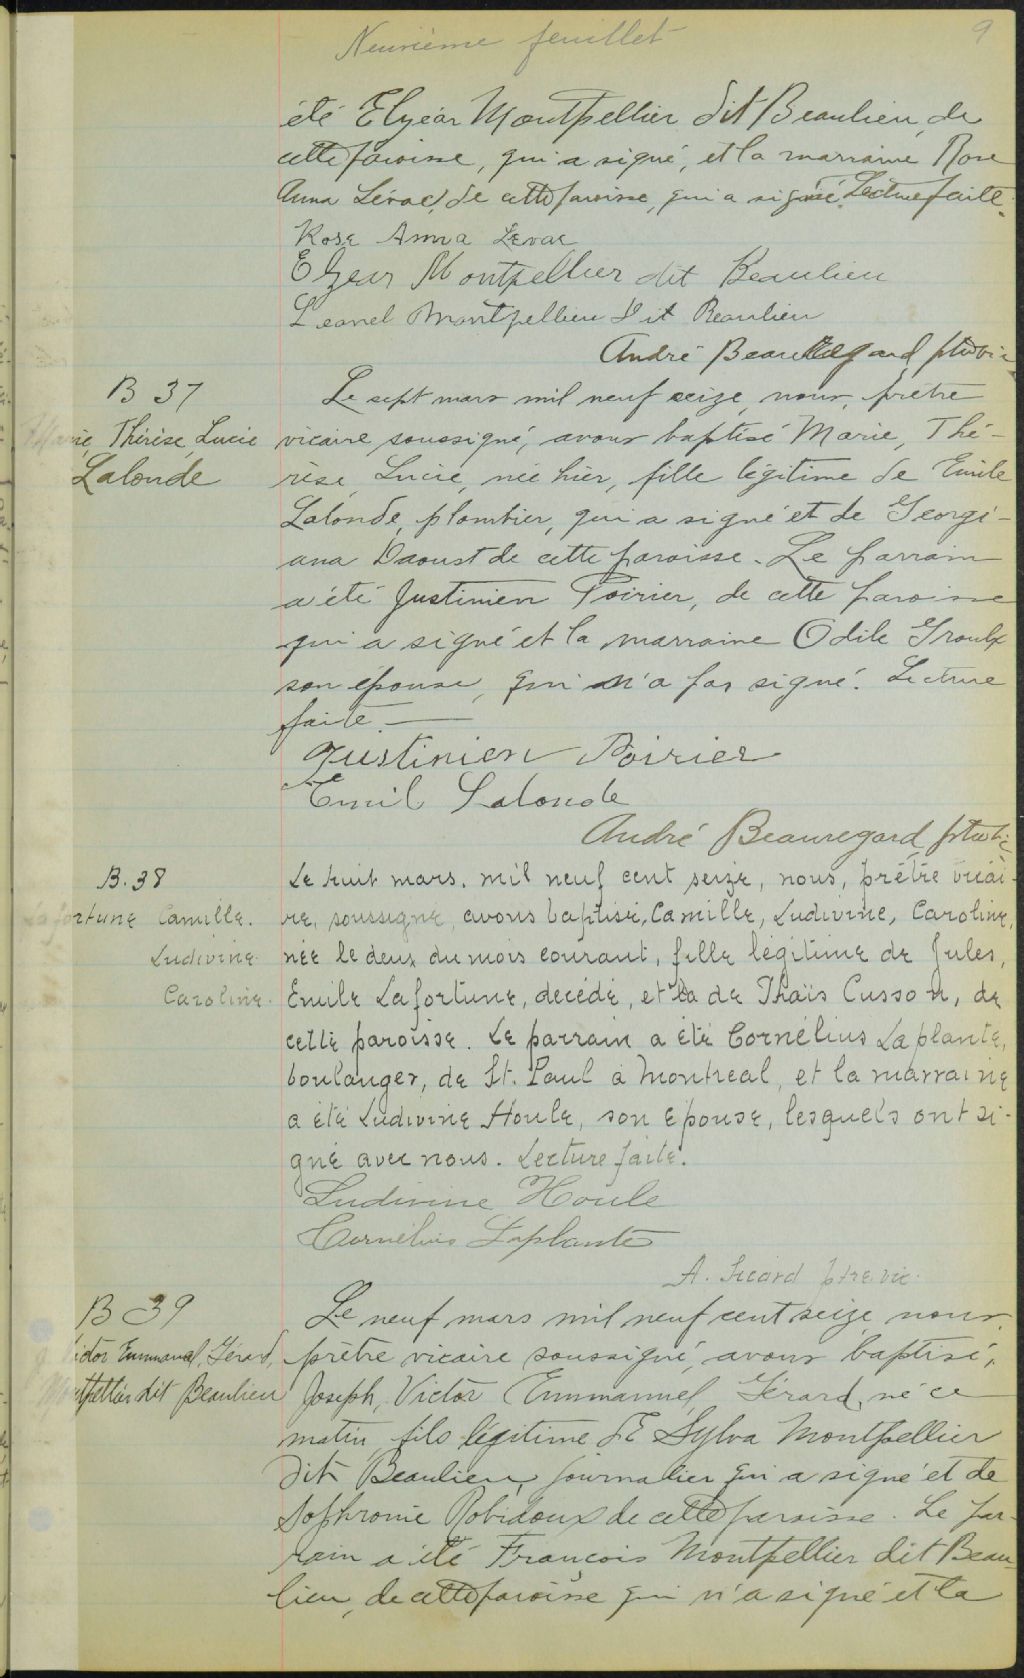 Neuvième feuillet 9
été Elyéar Montpellier dit Beaulieu, de
cette paroisse, qui a signé, et la marraine Rose
Anna Lévac, de cette paroisse, qui a signé. Lecture faite.
Rose Anna Levac
Elzear Montpellier dit Beaulieu
Leonel Montpellier dit Beaulieu
André Beauregard ptre vic
B 37
Marie, Thérèse, Lucie
Lalonde
Le sept mars mil neuf seize, nous, prêtre
vicaire soussigné, avons baptisé Marie, Thé-
rèse, Lucie, née hier, fille légitime de Emile
Lalonde, plombier, qui a signé et de Georgi-
ana Daoust de cette paroisse. Le parrain
a été Justinien Poirier, de cette paroisse
qui a signé et la marraine Odile Groulx
son épouse, qui n'a pas signé. Lecture
faite.
Justinien Poirier
Emil Lalonde
André Beauregard ptre vic
B. 38
Lafortune Camille.
Ludivine.
Caroline.
Le huit mars. mil neuf cent seize, nous, prêtre vicai-
re, soussigné, avons baptisé, Camille, Ludivine, Caroline,
née le deux du mois courant, fille légitime de Jules,
Emile Lafortune, décédé, et de Thaïs Cusson, de
cette paroisse. Le parrain a été Cornélius Laplante,
boulanger, de St. Paul à Montreal, et la marraine
a été Ludivine Houle, son épouse, lesquels ont si-
gné avec nous. Lecture faite.
Ludivine Houle
Cornélius Laplante
A. Sicard ptre. vic.
B 39
Victor Emmanuel, Gérard,
Montpellier dit Beaulieu
Le neuf mars mil neuf cent seize nous,
prêtre vicaire soussigné, avons baptisé,
Joseph, Victor Emmanuel, Gérard, né ce
matin, fils légitime de Sylva Montpellier
dit Beaulieu, journalier qui a signé et de
Sophronie Robidoux de cette paroisse. Le par-
rain a été François Montpellier dit Beau-
lieu, de cette paroisse qui n'a signé et la